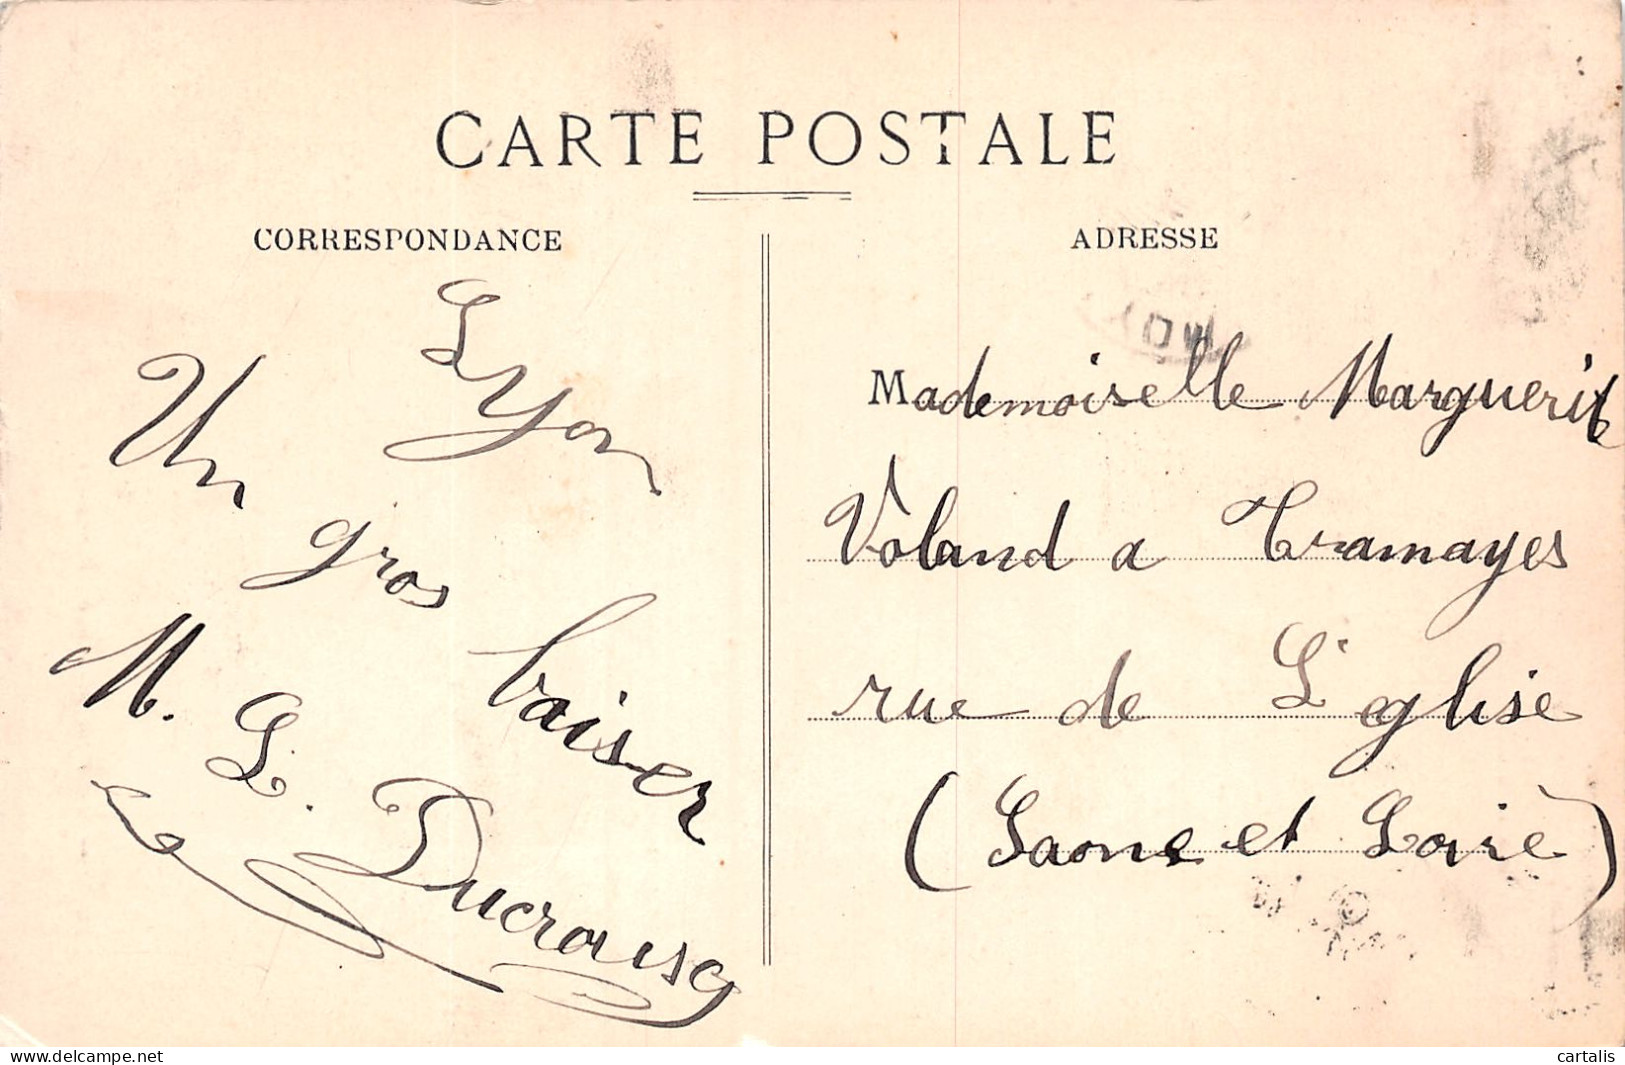 CARTE POSTALE
CORRESPONDANCE
Lyon
Un gros baiser
M. L.
ADRESSE
Mademoiselle Marguerite
Voland a Tramayes
rue de L'eglise
(Saone et Loire)
www.delcampe.net
cartalis